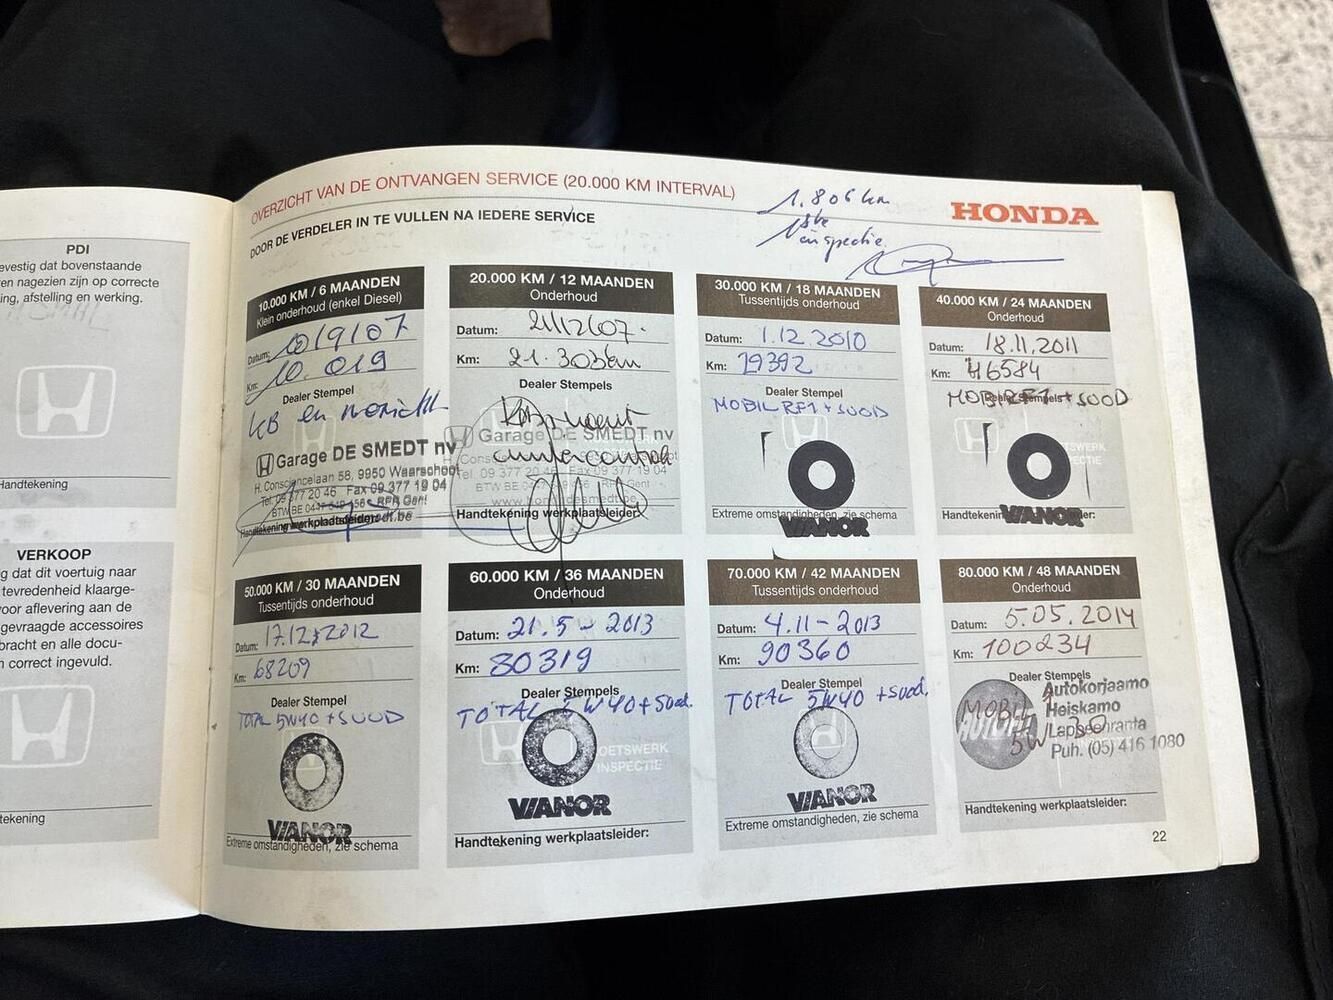 PDI
evestig dat bovenstaande
en nagezien zijn op correcte
ing, afstelling en werking.
Handtekening
VERKOOP
g dat dit voertuig naar
tevredenheid klaarge-
voor aflevering aan de
gevraagde accessoires
bracht en alle docu-
n correct ingevuld.
tekening
OVERZICHT VAN DE ONTVANGEN SERVICE (20.000 KM INTERVAL)
DOOR DE VERDELER IN TE VULLEN NA IEDERE SERVICE
1.806 km
1ste
inspectie
HONDA
10.000 KM / 6 MAANDEN
Klein onderhoud (enkel Diesel)
Datum: 10/9/07
Km: 10.019
Dealer Stempel
Garage DE SMEDT nv
H. Consciencelaan 58, 9950 Waarschoot
Tel. 09 377 20 46 Fax 09 377 19 04
RPR Gent
Handtekening werkplaatsleider:
20.000 KM / 12 MAANDEN
Onderhoud
Datum: 21/12/07.
Km: 21.303km
Dealer Stempels
Garage DE SMEDT nv
Tel. 09 377 20 46 Fax 09 377 19 04
Handtekening werkplaatsleider:
30.000 KM / 18 MAANDEN
Tussentijds onderhoud
Datum: 1.12.2010
Km: 29392
Dealer Stempel
MOBIL RF1 + SUOD
Extreme omstandigheden, zie schema
VIANOR
40.000 KM / 24 MAANDEN
Onderhoud
Datum: 18.11.2011
Km: 46584
Dealer Stempels
MOBIL RF1 + SUOD
VIANOR
50.000 KM / 30 MAANDEN
Tussentijds onderhoud
Datum: 17.12.2012
Km: 68209
Dealer Stempel
TOTAL 5W40 + SUOD
VIANOR
Extreme omstandigheden, zie schema
60.000 KM / 36 MAANDEN
Onderhoud
Datum: 21.5-2013
Km: 80319
Dealer Stempels
TOTAL 5W40 + Suod.
OETSWERK
INSPECTIE
VIANOR
Handtekening werkplaatsleider:
70.000 KM / 42 MAANDEN
Tussentijds onderhoud
Datum: 4.11-2013
Km: 90360
Dealer Stempel
TOTAL 5W40 + suod.
VIANOR
Extreme omstandigheden, zie schema
80.000 KM / 48 MAANDEN
Onderhoud
Datum: 5.05.2014
Km: 100234
Dealer Stempels
MOBIL 1
5W 30
Autokorjaamo
Heiskamo
Lappeenranta
Puh. (05) 416 1080
Handtekening werkplaatsleider:
22